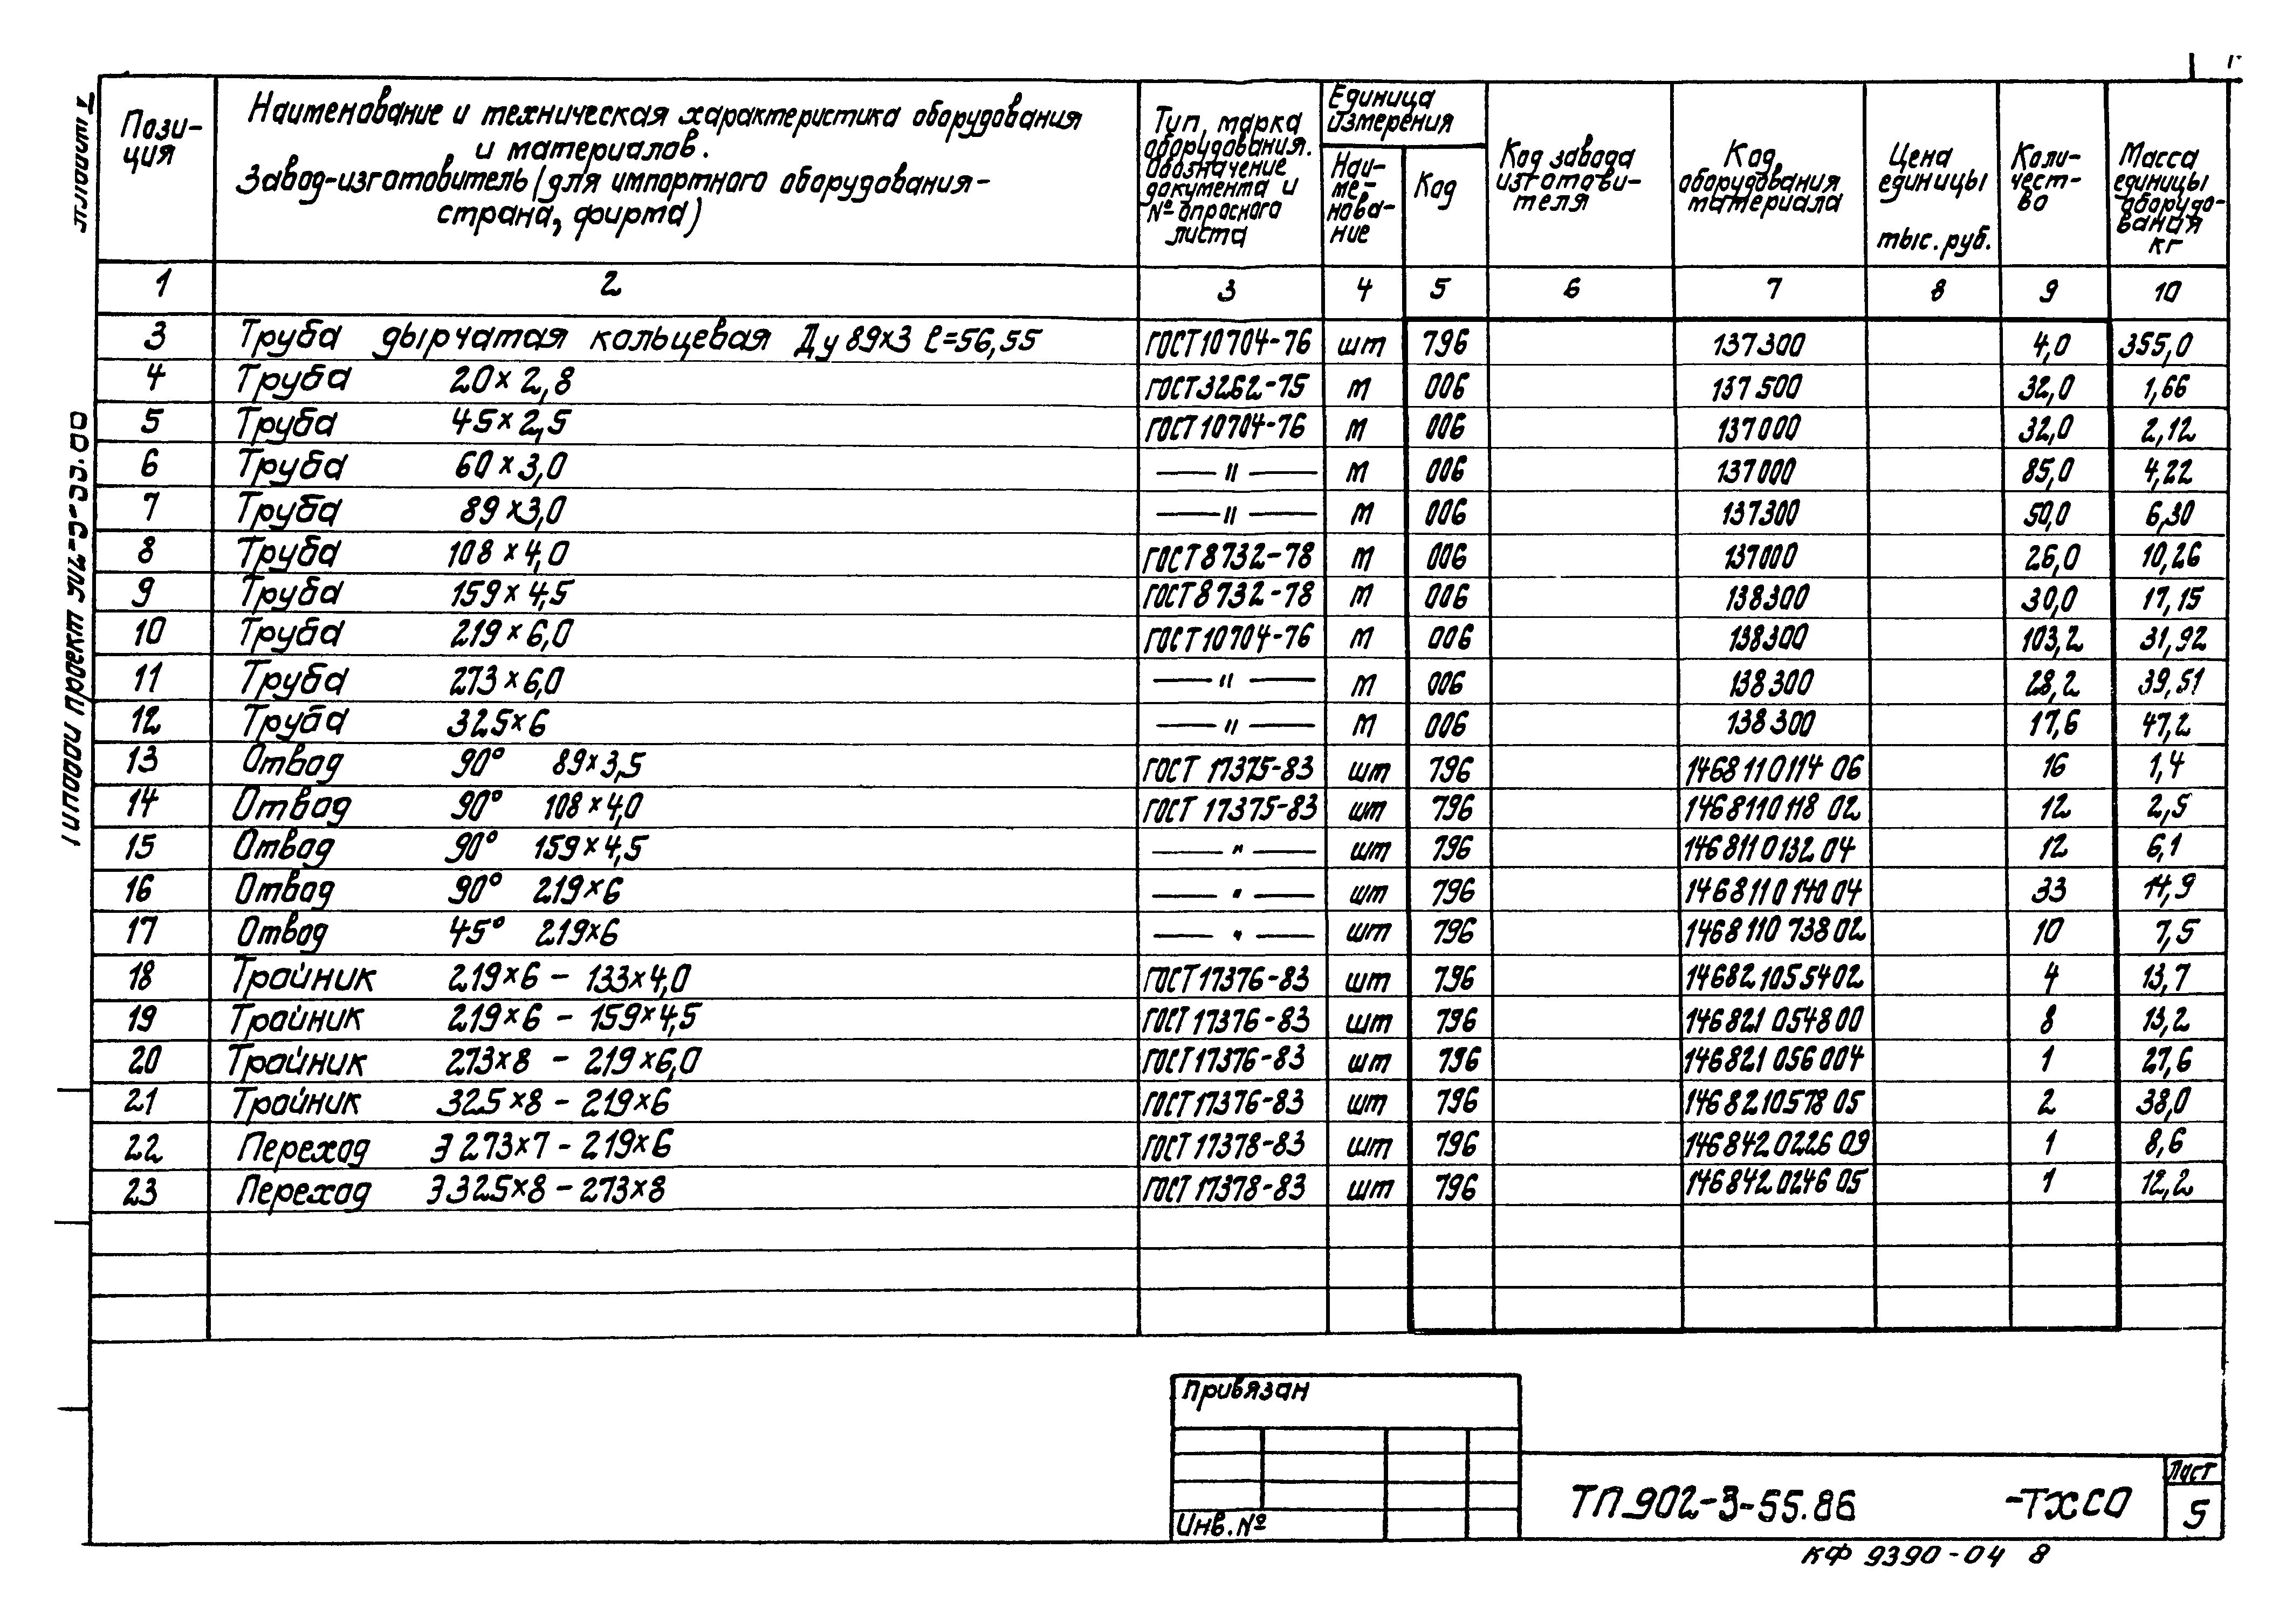 Пози-
ция
Наименование и техническая характеристика оборудования
и материалов.
Завод-изготовитель (для импортного оборудования-
страна, фирма)
Тип, марка
оборудования.
Обозначение
документа и
№ опросного
листа
Единица
измерения
Наи-
ме-
нова-
ние
Код
Код завода
изготови-
теля
Код
оборудования
материала
Цена
единицы
тыс. руб.
Коли-
чест-
во
Масса
единицы
оборудо-
вания
кг
1 2 3 4 5 6 7 8 9 10
3 Труба дырчатая кольцевая Ду 89×3 ℓ=56,55 ГОСТ 10704-76 шт 796 137300 4,0 355,0
4 Труба 20×2,8 ГОСТ 3262-75 м 006 137500 32,0 1,66
5 Труба 45×2,5 ГОСТ 10704-76 м 006 137000 32,0 2,12
6 Труба 60×3,0 —"— м 006 137000 85,0 4,22
7 Труба 89×3,0 —"— м 006 137300 50,0 6,30
8 Труба 108×4,0 ГОСТ 8732-78 м 006 137000 26,0 10,26
9 Труба 159×4,5 ГОСТ 8732-78 м 006 138300 30,0 17,15
10 Труба 219×6,0 ГОСТ 10704-76 м 006 138300 103,2 31,92
11 Труба 273×6,0 —"— м 006 138300 28,2 39,51
12 Труба 325×6 —"— м 006 138300 17,6 47,2
13 Отвод 90° 89×3,5 ГОСТ 17375-83 шт 796 1468110114 06 16 1,4
14 Отвод 90° 108×4,0 ГОСТ 17375-83 шт 796 1468110118 02 12 2,5
15 Отвод 90° 159×4,5 —"— шт 796 1468110132 04 12 6,1
16 Отвод 90° 219×6 —"— шт 796 1468110140 04 33 14,9
17 Отвод 45° 219×6 —"— шт 796 1468110738 02 10 7,5
18 Тройник 219×6 - 133×4,0 ГОСТ 17376-83 шт 796 1468210554 02 4 13,7
19 Тройник 219×6 - 159×4,5 ГОСТ 17376-83 шт 796 146821 0548 00 8 13,2
20 Тройник 273×8 - 219×6,0 ГОСТ 17376-83 шт 796 146821 0560 04 1 27,6
21 Тройник 325×8 - 219×6 ГОСТ 17376-83 шт 796 1468210578 05 2 38,0
22 Переход Э 273×7 - 219×6 ГОСТ 17378-83 шт 796 146842 0226 09 1 8,6
23 Переход Э 325×8 - 273×8 ГОСТ 17378-83 шт 796 146842 0246 05 1 12,2
Привязан
Инв. №
ТП 902-3-55.86 -ТХСО
Лист
5
КФ 9390-04 8